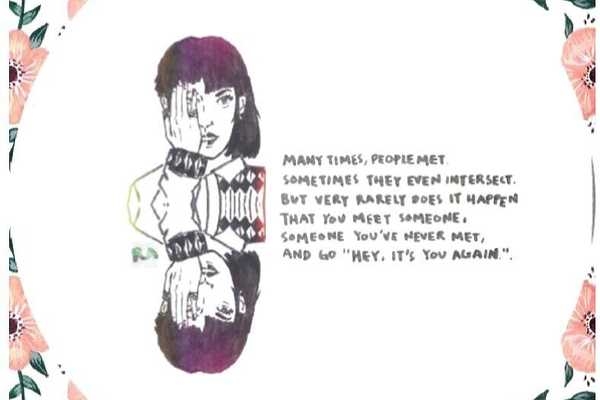 MANY TIMES, PEOPLE MET.
SOMETIMES THEY EVEN INTERSECT.
BUT VERY RARELY DOES IT HAPPEN
THAT YOU MEET SOMEONE,
SOMEONE YOU'VE NEVER MET,
AND GO "HEY, IT'S YOU AGAIN.".